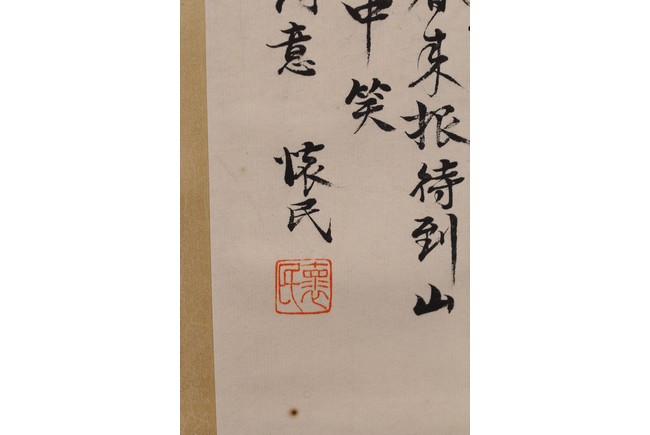 春来报待到山
中笑
意
懷民
懷民